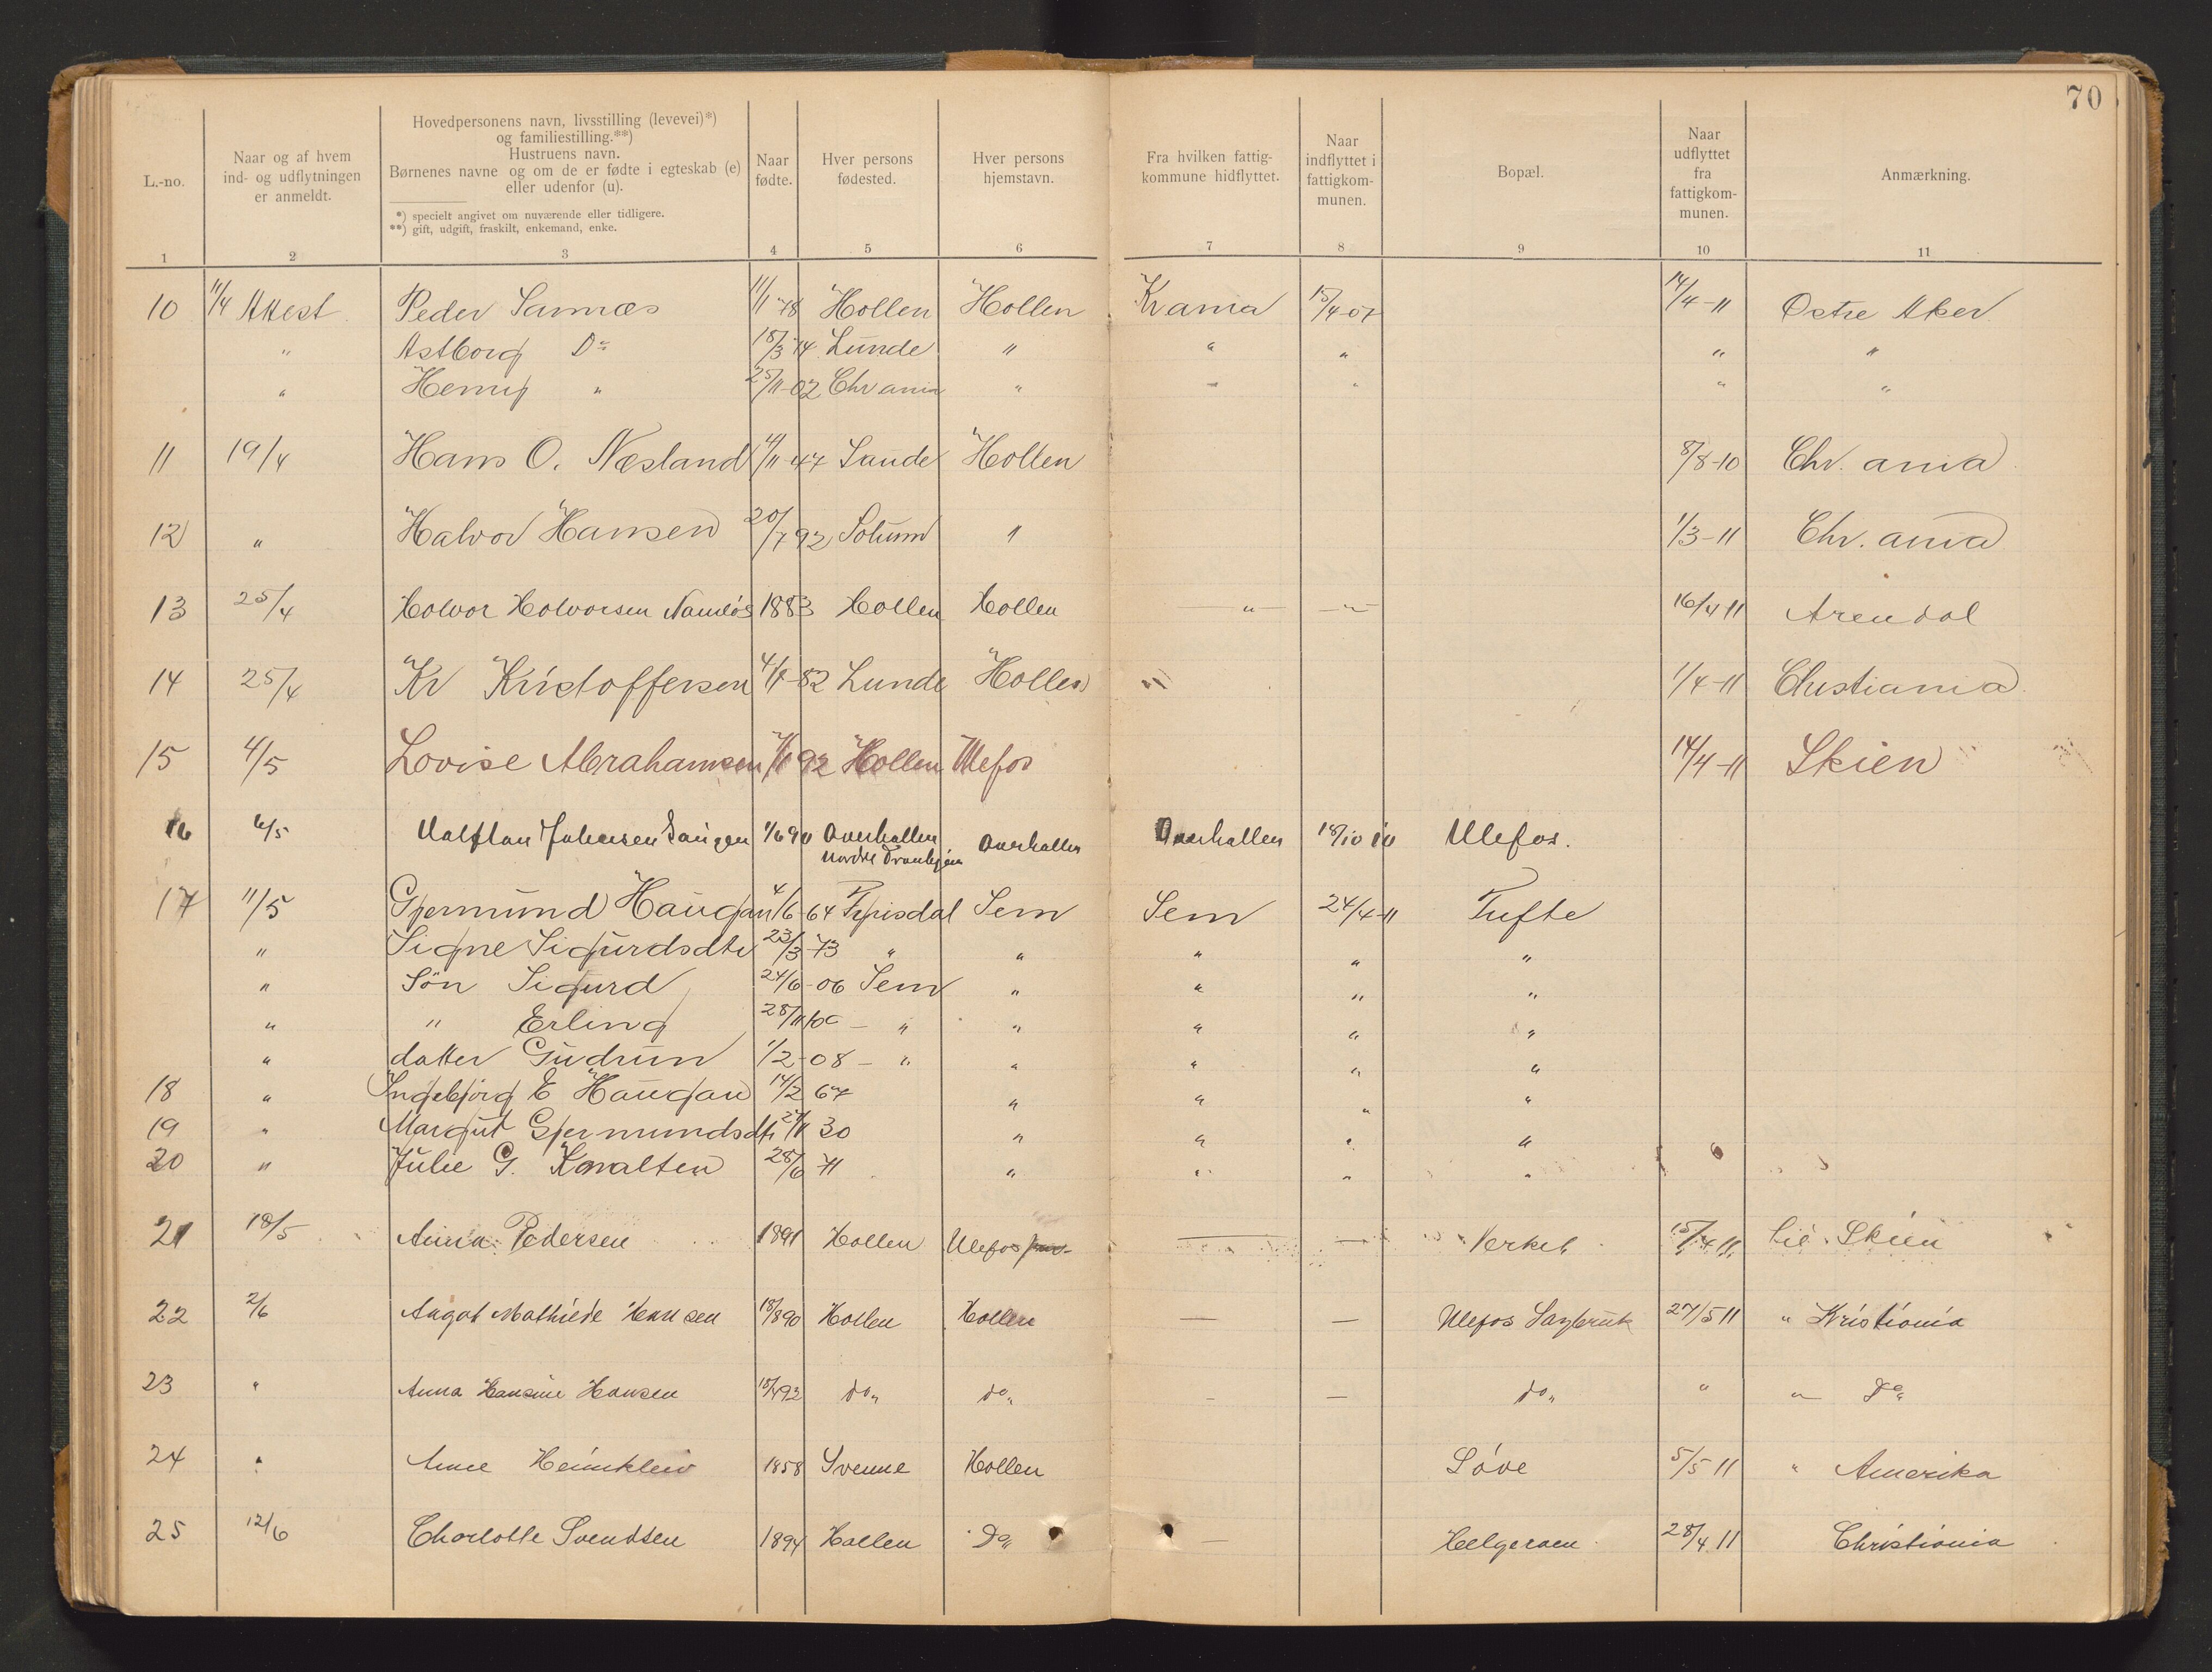 70
L.-no.
Naar og af hvem ind- og udflytningen er anmeldt.
Hovedpersonens navn, livsstilling (levevei)*) og familiestilling.**)
Hustruens navn.
Børnenes navne og om de er fødte i egteskab (e) eller udenfor (u).
*) specielt angivet om nuværende eller tidligere.
**) gift, udgift, fraskilt, enkemand, enke.
Naar fødte.
Hver persons fødested.
Hver persons hjemstavn.
Fra hvilken fattigkommune hidflyttet.
Naar indflyttet i fattigkommunen.
Bopæl.
Naar udflyttet fra fattigkommunen.
Anmærkning.
1 2 3 4 5 6 7 8 9 10 11
10 11/4 Attest Peder Sannæs 11/1 78 Hollen Hollen Krania 15/4-07 14/4-11 Østre Aker
" Astborg Do 18/3 74 Lunde " " " " "
" Henry " 25/11-02 Chrania " " " " "
11 19/4 Hans O. Næsland 4/11-47 Saude Hollen 8/8-10 Chr. ania
12 " Halvor Hansen 20/7 92 Solum " 1/3-11 Chr. ania
13 25/4 Holvor Holvorsen Namløs 1883 Hollen Hollen — " — — " — 16/4 11 Arendal
14 25/4 Kr Kristoffersen 4/7-82 Lunde Hollen " 1/4-11 Christiania
15 4/5 Lovise Abrahamsen 92 Hollen Ulefos 14/4-11 Skien
16 6/5 Johansen 1/6 90 Overhallen Overhallen Overhallen 18/10 10 Ulefos.
Nordre Trondhjem
17 11/5 Gjermund Haugan 4/6-64 Fyrisdal Sem Sem 24/4-11 Tufte
" Signe Sigurdsdtr 23/3-73 " " " " "
" Søn Sigurd 24/6-06 Sem " " " "
" " Erling 28/11 — " " " " "
" datter Gudrun 1/2-08 — " " " " "
18 " Ingebjørg E Haugan 14/2 67 " " " "
19 " Margit Gjermundsdtr 30 " " " "
20 " Julie G. 28/6 71 " " " "
21 18/5 Anna Pedersen 1891 Hollen Ulefos — — Verket 15/4 11 til Skien
22 2/6 Aagot Mathilde Hansen 18/8 90 Hollen Hollen — — Ulefos Sagbruk 27/5 11 " Kristiania
23 " Anna Hansine Hansen 92 do " do " — — do " " " Do "
24 " Anne 1858 Svenne Hollen Søve 5/5 11 " Amerika
25 12/6 Charlotte Svendsen 1894 Hollen Do " — Helgeraen 28/4 11 Christiania